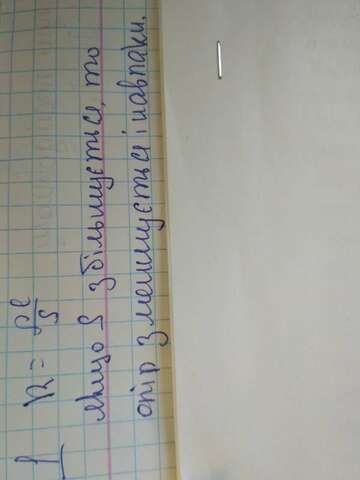 R = ρl/S
якщо S збільшується, то
опір зменшується і навпаки.